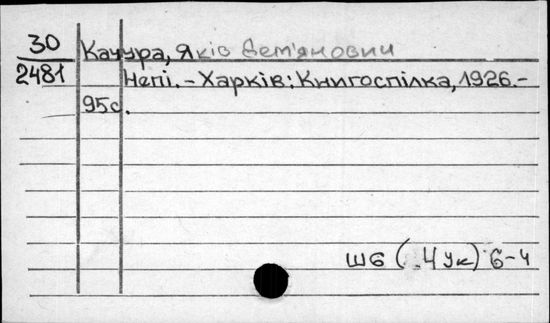 30 Качура, Яків Дем'янович
2481 Непі. - Харків: Книгоспілка, 1926. -
95с.
Шб (4Ук) 6-4